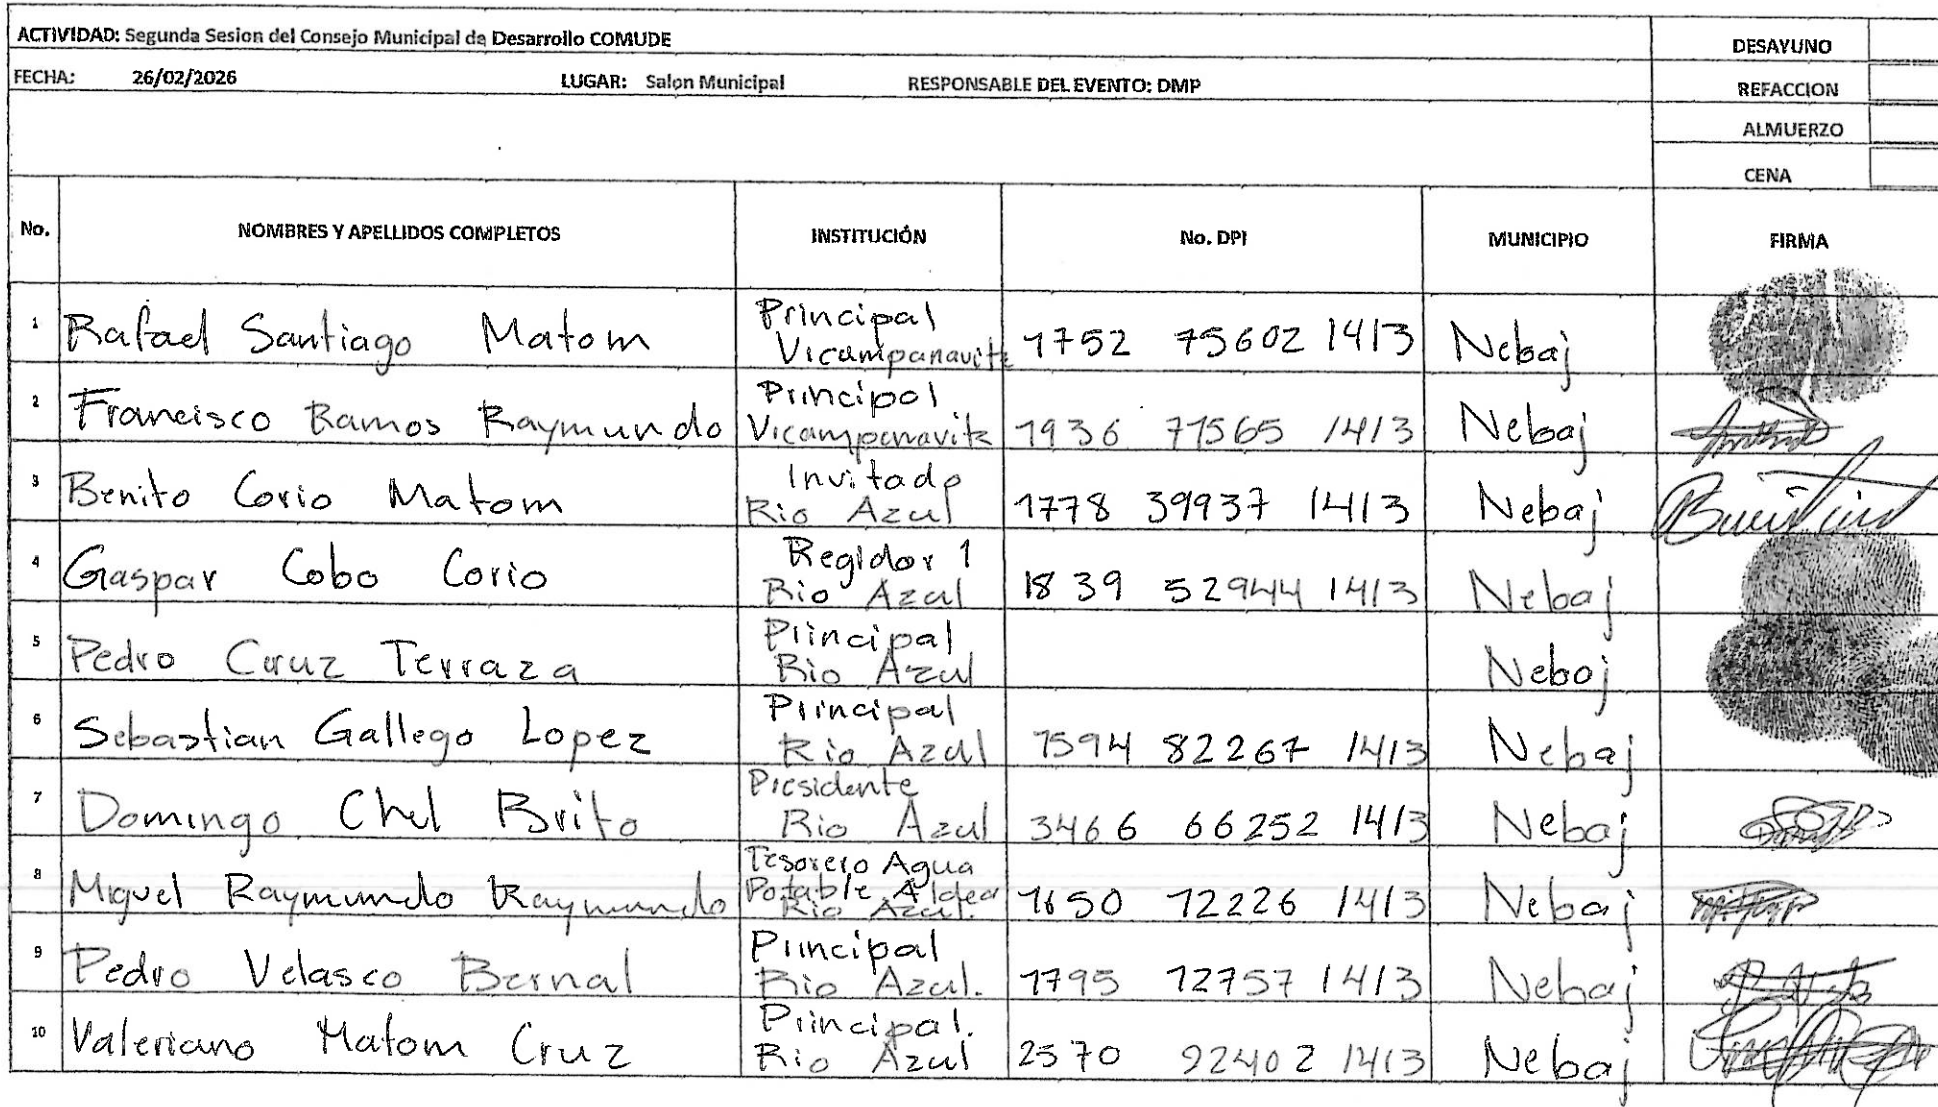 ACTIVIDAD: Segunda Sesion del Consejo Municipal de Desarrollo COMUDE
DESAYUNO
FECHA: 26/02/2026 LUGAR: Salon Municipal RESPONSABLE DEL EVENTO: DMP
REFACCION
ALMUERZO
CENA
No. NOMBRES Y APELLIDOS COMPLETOS INSTITUCIÓN No. DPI MUNICIPIO FIRMA
1 Rafael Santiago Matom Principal Vicampanavitz 1752 75602 1413 Nebaj
2 Francisco Ramos Raymundo Principal Vicampanavitz 1936 71565 1413 Nebaj
3 Benito Corio Matom Invitado Rio Azul 1778 39937 1413 Nebaj
4 Gaspar Cobo Corio Regidor 1 Rio Azul 1839 52944 1413 Nebaj
5 Pedro Cruz Terraza Principal Rio Azul Nebaj
6 Sebastian Gallego Lopez Principal Rio Azul 1594 82267 1413 Nebaj
7 Domingo Chel Brito Presidente Rio Azul 3466 66252 1413 Nebaj
8 Miguel Raymundo Raymundo Tesorero Agua Potable Aldea Rio Azul. 1650 12226 1413 Nebaj
9 Pedro Velasco Bernal Principal Rio Azul. 1795 12757 1413 Nebaj
10 Valeriano Matom Cruz Principal. Rio Azul 2570 92402 1413 Nebaj